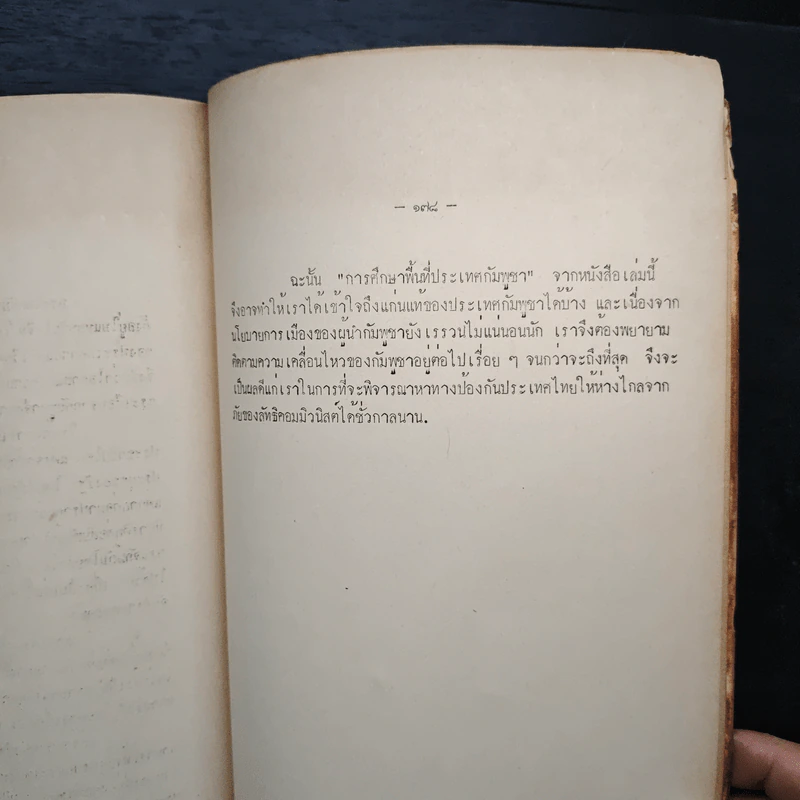 – ๑๗๘ –
ฉะนั้น "การศึกษาพื้นที่ประเทศกัมพูชา" จากหนังสือเล่มนี้
จึงอาจทำให้เราได้เข้าใจถึงแก่นแท้ของประเทศกัมพูชาได้บ้าง และเนื่องจาก
นโยบายการเมืองของผู้นำกัมพูชายังเรรวนไม่แน่นอนนัก เราจึงต้องพยายาม
ติดตามความเคลื่อนไหวของกัมพูชาอยู่ต่อไปเรื่อย ๆ จนกว่าจะถึงที่สุด จึงจะ
เป็นผลดีแก่เราในการที่จะพิจารณาหาทางป้องกันประเทศไทยให้ห่างไกลจาก
ภัยของลัทธิคอมมิวนิสต์ได้ชั่วกาลนาน.